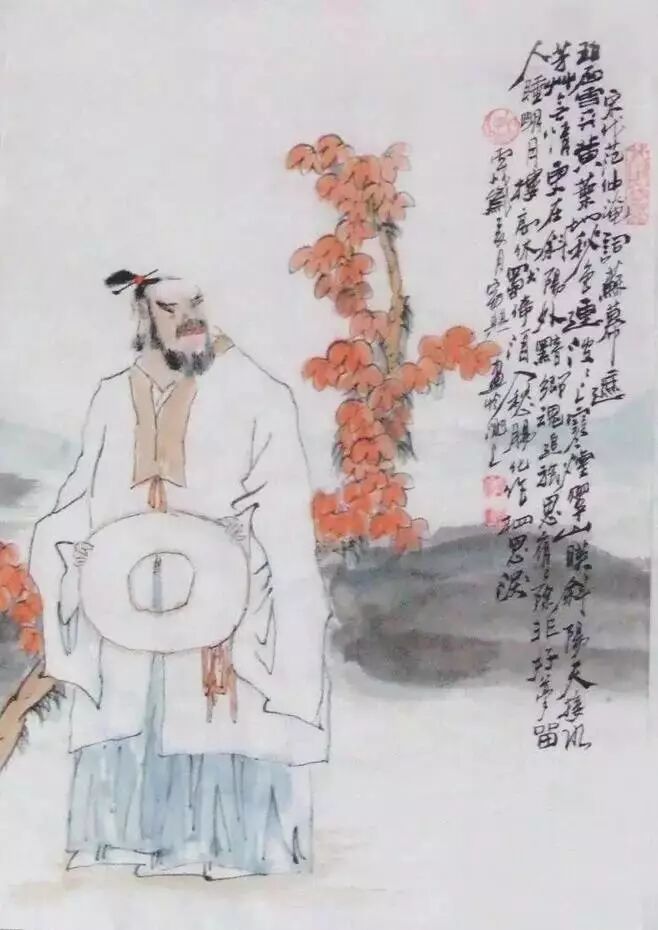 宋代范仲淹詞蘇幕遮
碧雲天黄葉地秋色連波〻上寒煙翠山映斜陽天接水
芳艸無情更在斜陽外黯鄉魂追旅思夜〻除非好夢留
人睡明月樓高休獨倚酒入愁腸化作相思淚